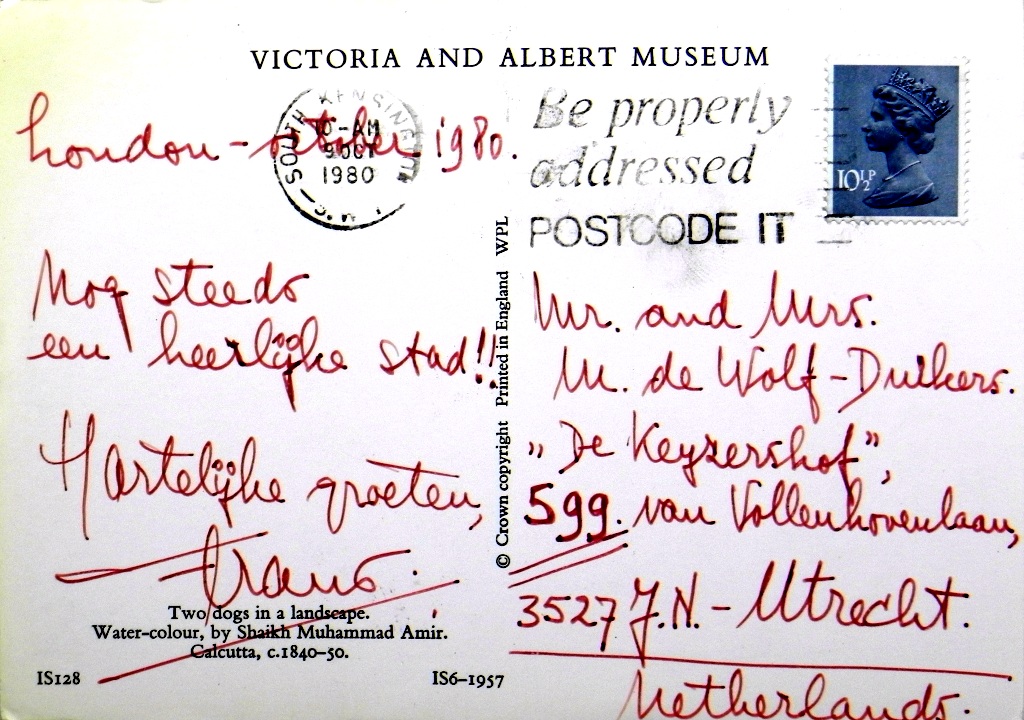 VICTORIA AND ALBERT MUSEUM
London - october 1980.
SOUTH KENSINGTON
10-AM
9 OCT
1980
Be properly
addressed
POSTCODE IT
10½P
Nog steeds
een heerlijke stad!!
Hartelijke groeten,
Frans.
Two dogs in a landscape.
Water-colour, by Shaikh Muhammad Amir.
Calcutta, c.1840–50.
IS128
IS6–1957
© Crown copyright Printed in England WPL
Mr. and Mrs.
M. de Wolf-Duikers.
„De Keyzershof”,
599. van Vollenhovenlaan,
3527 J.N. - Utrecht.
Netherlands.